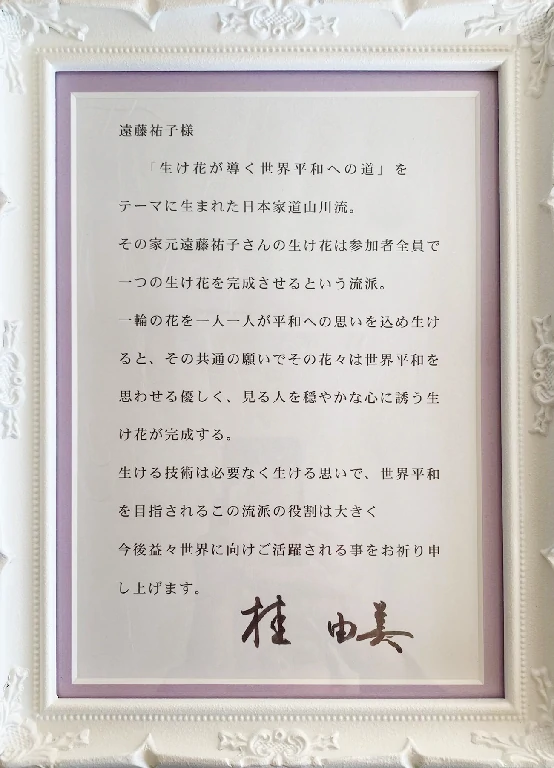 遠藤祐子様
「生け花が導く世界平和への道」を
テーマに生まれた日本家道山川流。
その家元遠藤祐子さんの生け花は参加者全員で
一つの生け花を完成させるという流派。
一輪の花を一人一人が平和への思いを込め生け
ると、その共通の願いでその花々は世界平和を
思わせる優しく、見る人を穏やかな心に誘う生
け花が完成する。
生ける技術は必要なく生ける思いで、世界平和
を目指されるこの流派の役割は大きく
今後益々世界に向けご活躍される事をお祈り申
し上げます。
桂 由美